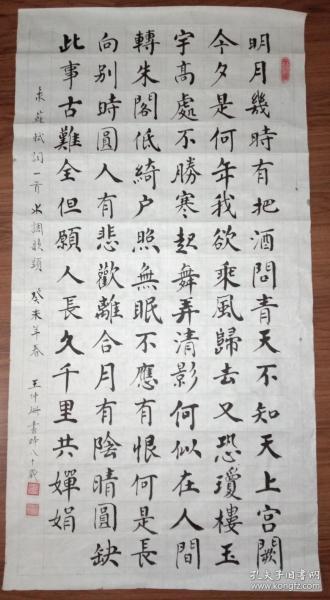 明月幾時有把酒問青天不知天上宮闕
今夕是何年我欲乘風歸去又恐瓊樓玉
宇高處不勝寒起舞弄清影何似在人間
轉朱閣低綺户照無眠不應有恨何是長
向别時圓人有悲歡離合月有陰晴圓缺
此事古難全但願人長久千里共嬋娟
蘇軾詞一首 水調歌頭 癸未年春 王仲珊書時八十歲
孔夫子旧书网